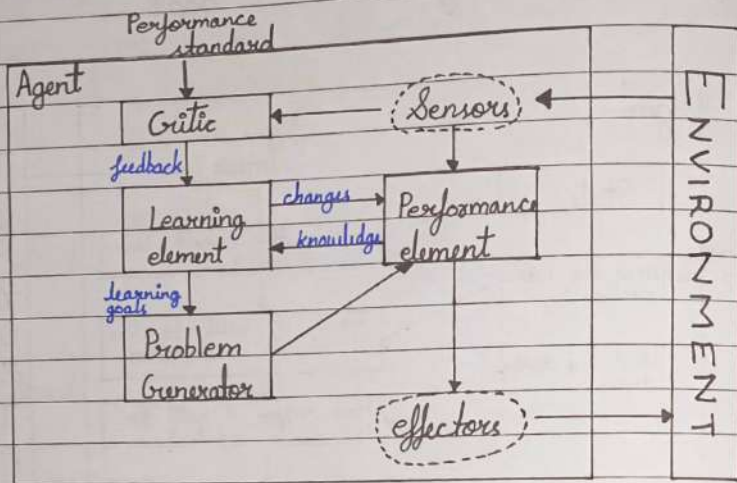 Performance
standard
Agent
Critic
Sensors
feedback
Learning
element
changes
knowledge
Performance
element
learning
goals
Problem
Generator
effectors
ENVIRONMENT